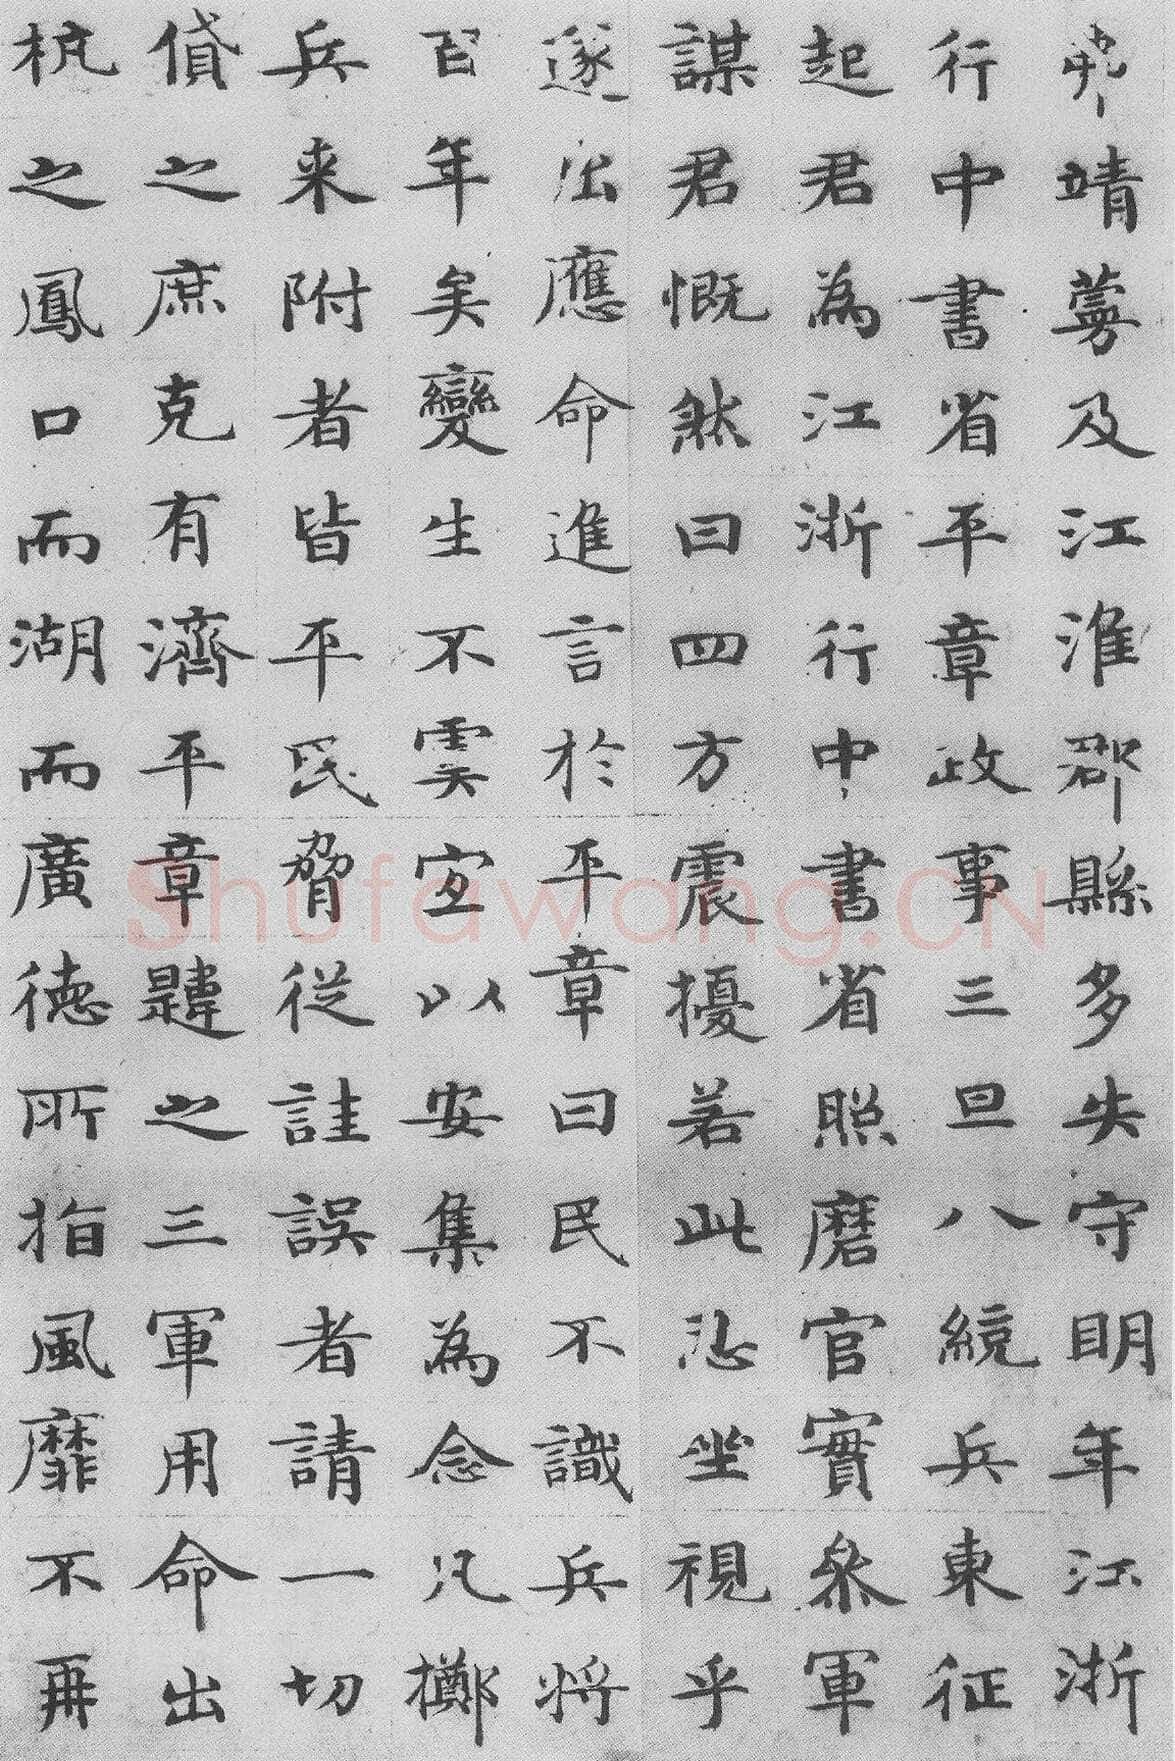 靖及江淮郡縣多失守明年江浙
行中書省平章政事三旦八統兵東征
起君為江浙行中書省照磨官實參軍
謀君慨然曰四方震擾若此恐坐視乎
遂出應命進言於平章曰民不識兵將
百年矣變生不虞宜以安集為念凡擲
兵来附者皆平民脅從詿誤者請一切
貸之庶克有濟平章韙之三軍用命出
杭之鳳口而湖而廣德所指風靡不再
Shufawang.CN